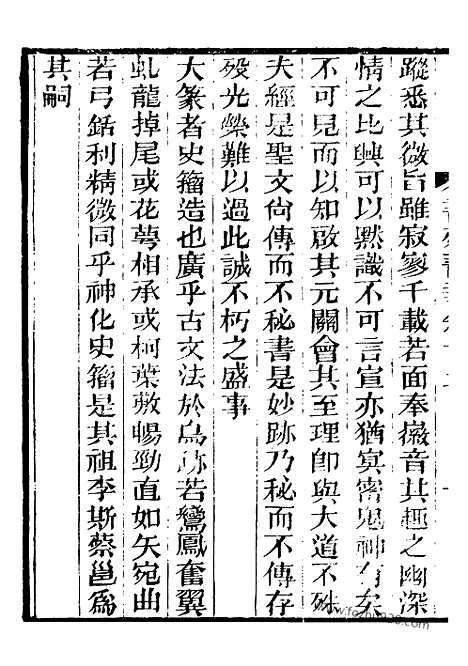 蹤悉其微旨雖寂寥千載若面奉徽音其趣之幽深
情之比興可以默識不可言宣亦猶冥密鬼神有矣
不可見而以知啟其元關會其至理即與大道不殊
夫經是聖文尙傳而不秘書是妙跡乃秘而不傳存
歿光榮難以過此誠不朽之盛事
大篆者史籀造也廣乎古文法於鳥跡若鸞鳳奮翼
虬龍掉尾或花萼相承或柯葉敷暢勁直如矢宛曲
若弓銛利精微同乎神化史籀是其祖李斯蔡邕爲
其嗣